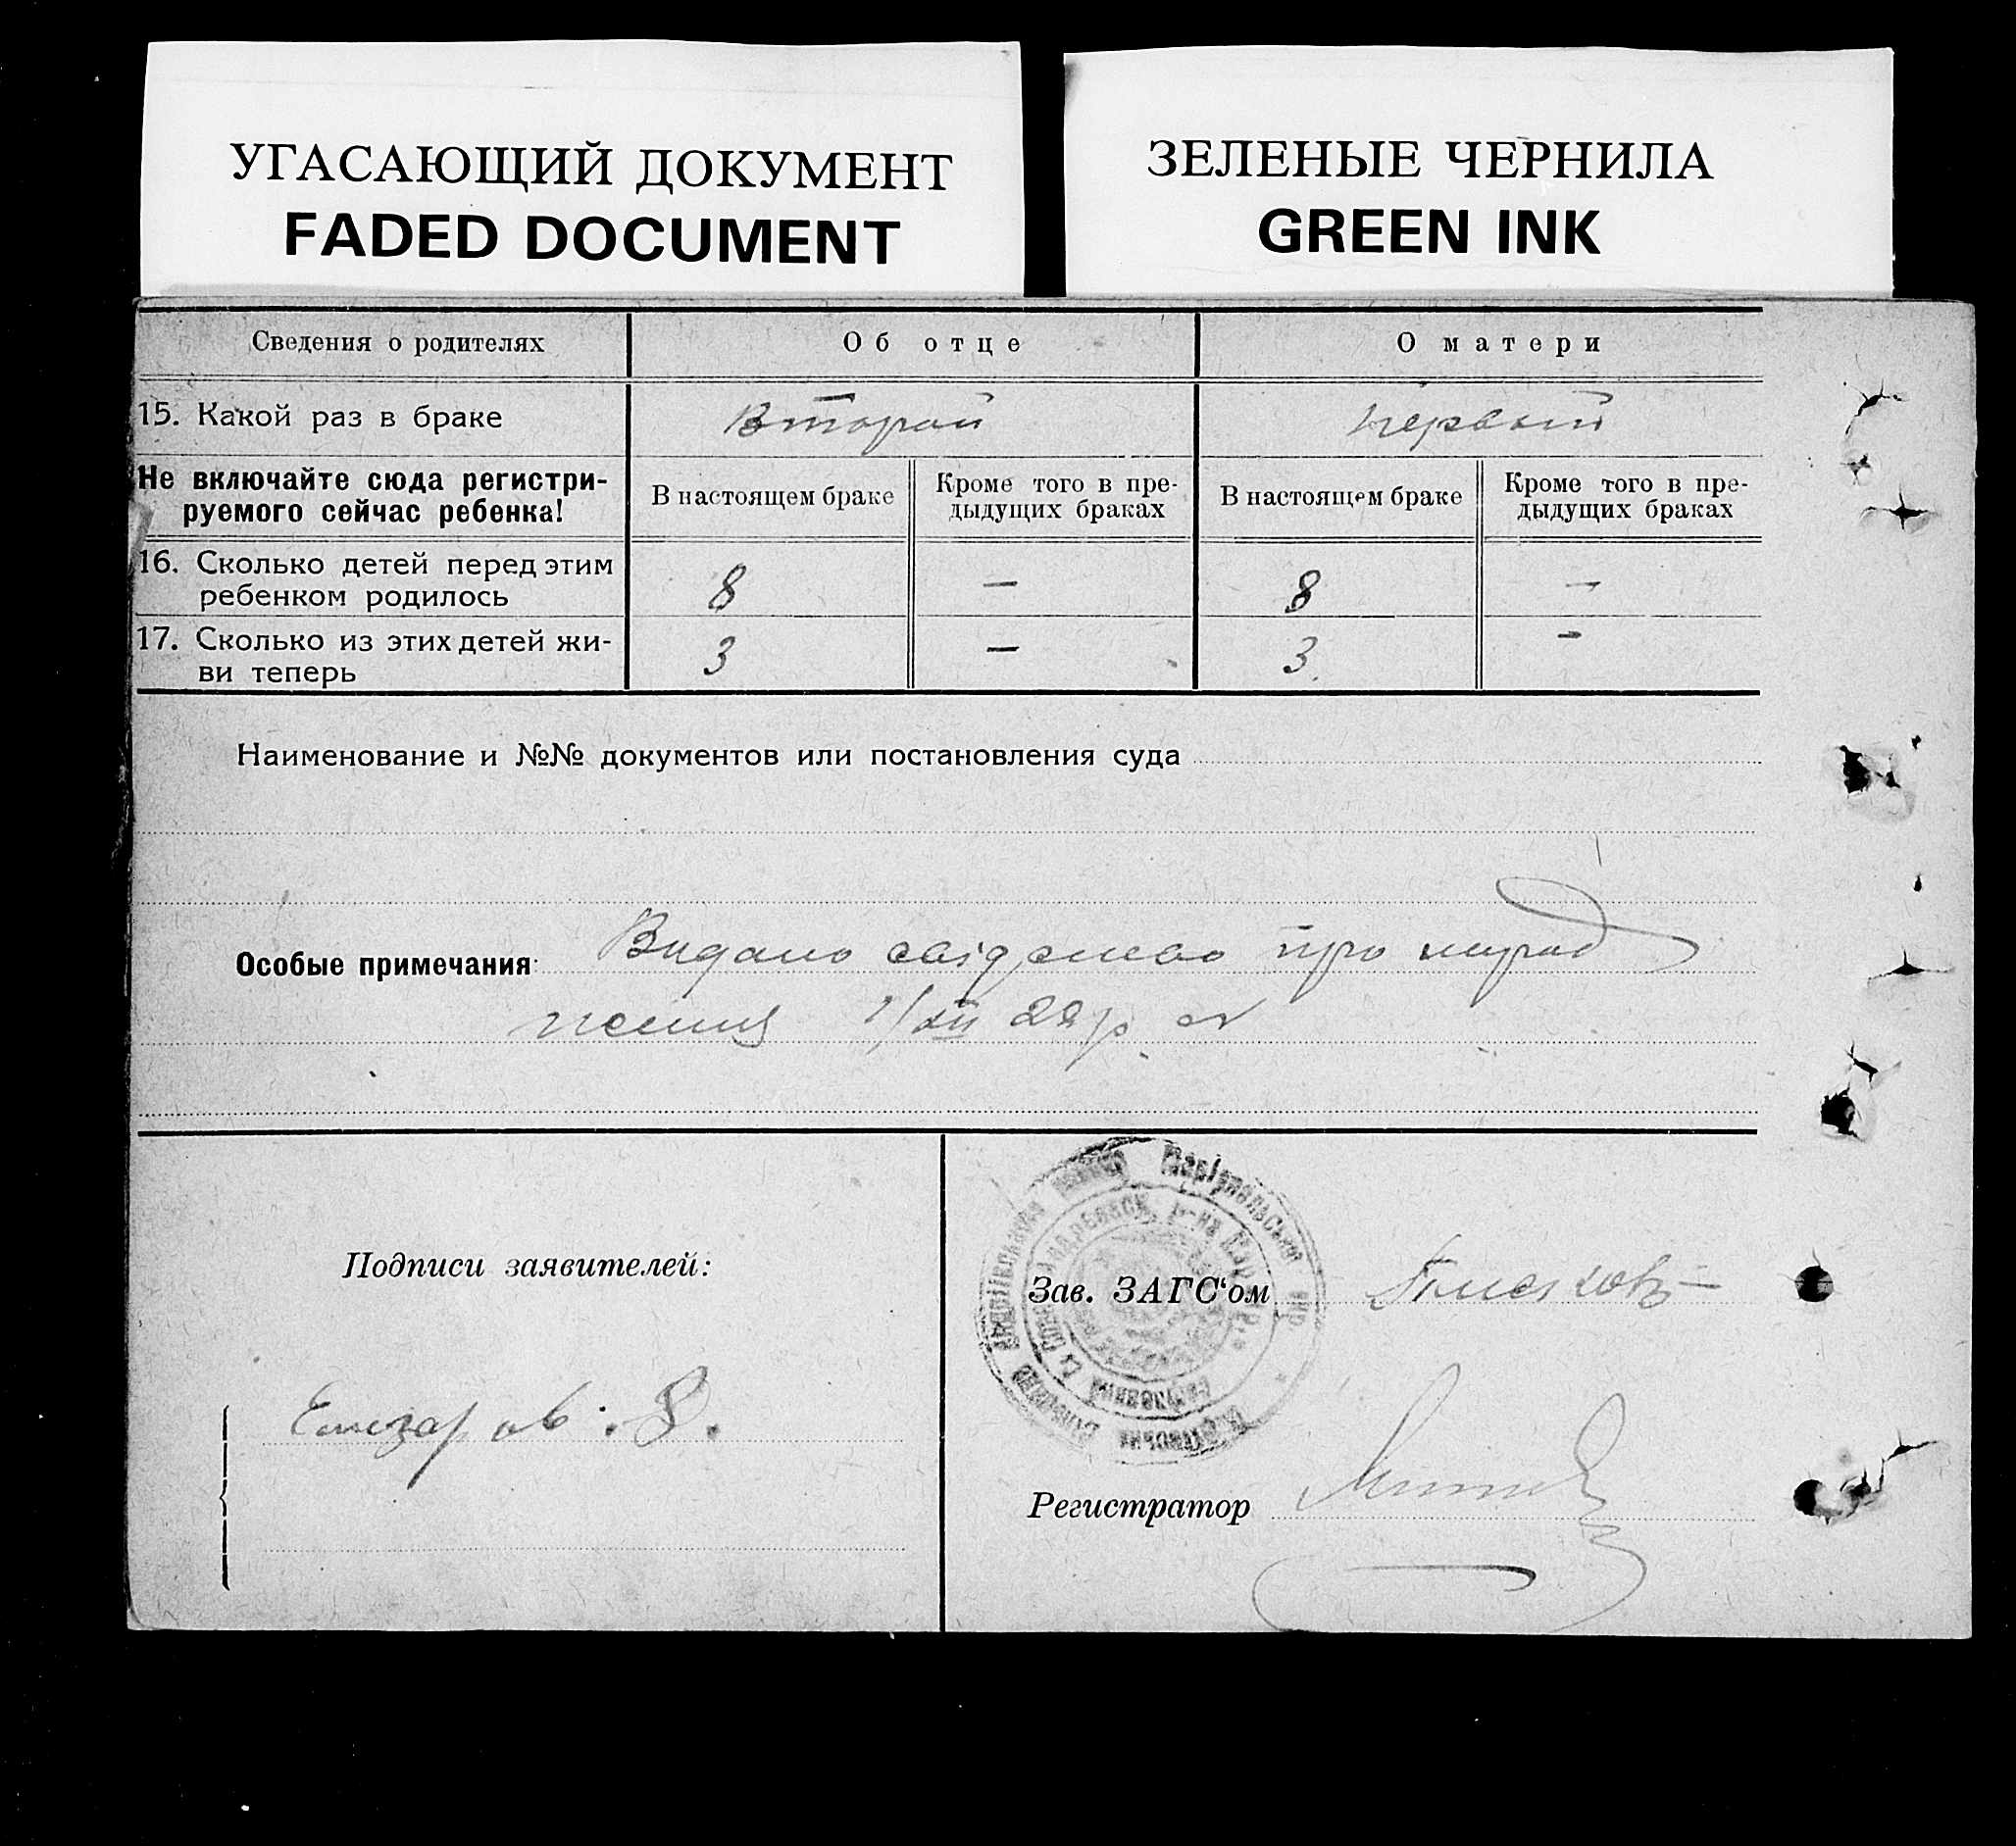 УГАСАЮЩИЙ ДОКУМЕНТ
FADED DOCUMENT
ЗЕЛЕНЫЕ ЧЕРНИЛА
GREEN INK
Сведения о родителях
Об отце
О матери
15. Какой раз в браке
Второй
первый
Не включайте сюда регистри-
руемого сейчас ребенка!
В настоящем браке
Кроме того в пре-
дыдущих браках
В настоящем браке
Кроме того в пре-
дыдущих браках
16. Сколько детей перед этим
ребенком родилось
8
—
8
—
17. Сколько из этих детей жи-
ви теперь
3
—
3.
-
Наименование и №№ документов или постановления суда
Особые примечания
Видано свідоцтво про народ
ження 1/XII 22р.
Подписи заявителей:
Зав. ЗАГС'ом
Елизаров
Регистратор
Маріупольської